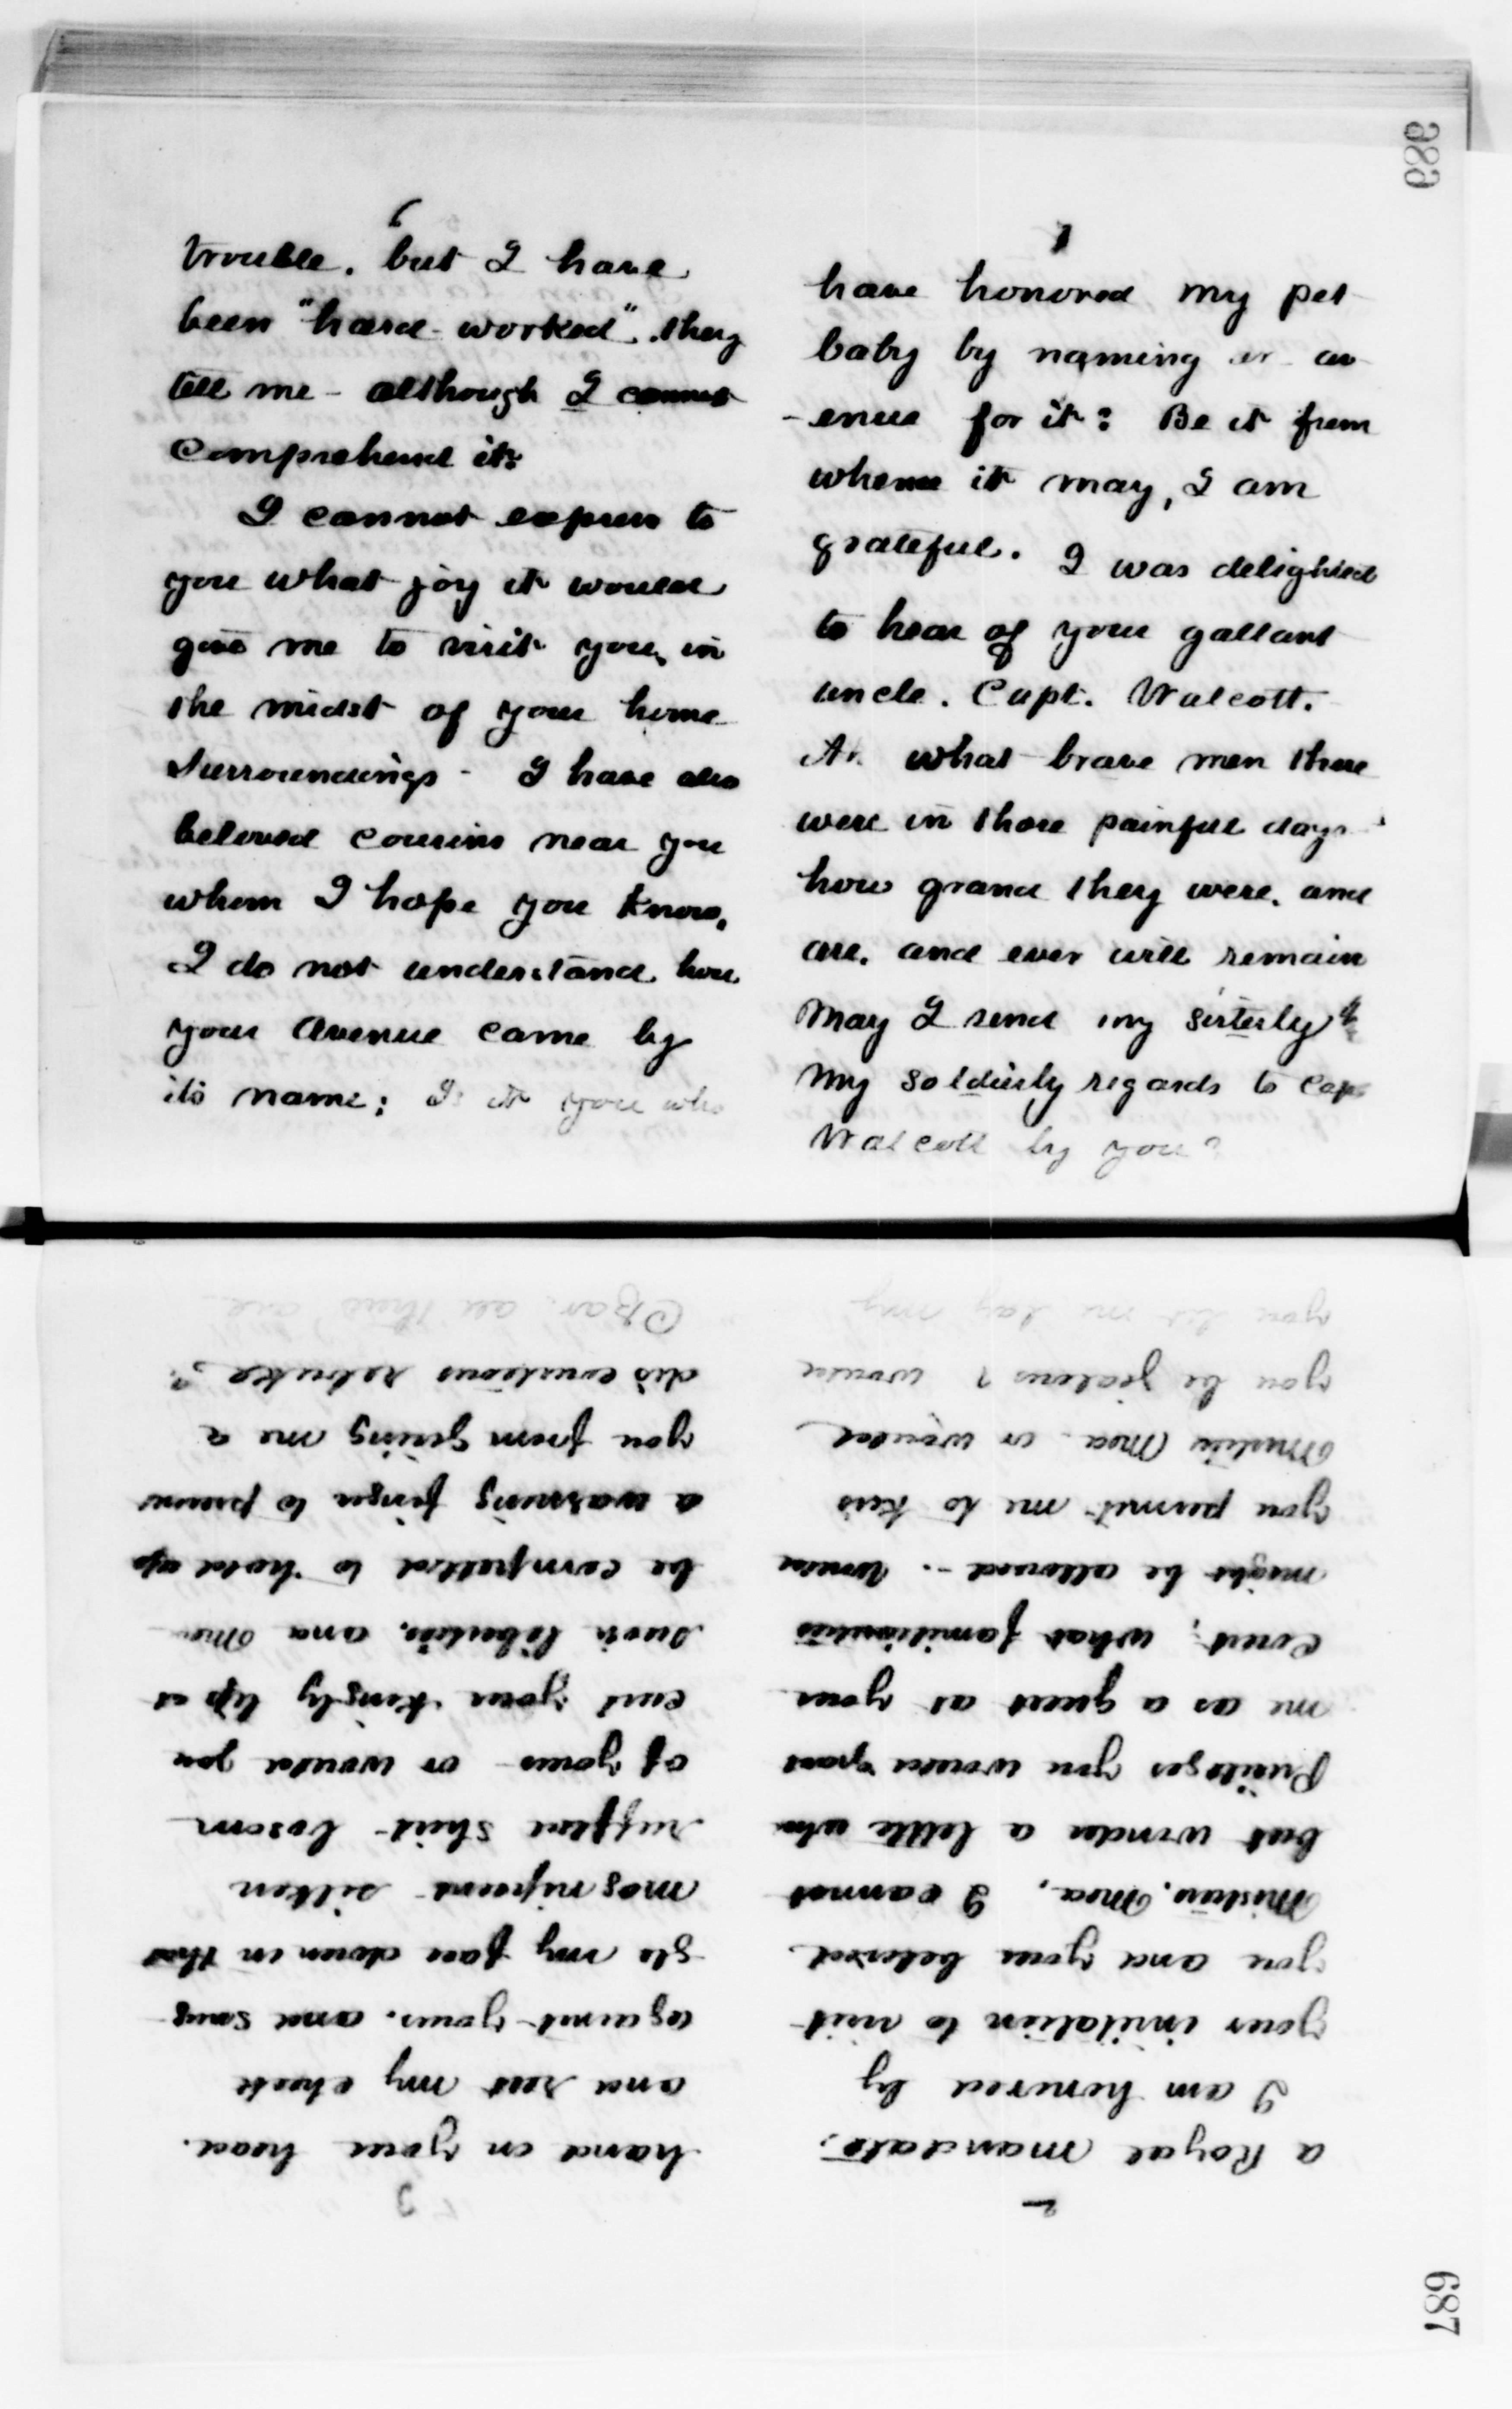 689
6
trouble. but I have
been "hard-worked". they
tell me - although I cannot
comprehend it.
I cannot express to
you what joy it would
give me to visit you, in
the midst of your home
surroundings - I have also
beloved cousins near you
whom I hope you know.
I do not understand how
your Avenue came by
its name; Is it you who
have honored my pet
baby by naming an av
-enue for it? Be it from
whence it may, I am
grateful. I was delighted
to hear of your gallant
uncle. Capt. Walcott.
Ah what brave men there
were in those painful days
how grand they were. and
are. and ever will remain
May I send my sisterly &
my soldierly regards to Capt
Walcott by you?
687
2
a Royal mandate;
I am honored by
your invitation to visit
you and your beloved
Mistress. Moa, I cannot
but wonder a little what
Privileges you would grant
me as a guest at your
Court; what familiarities
might be allowed -. Would
you permit me to kiss
Mistress Moa - or would
you be jealous? would
you let me lay my
3
hand on your head.
and rest my cheek
against yours. and snug
-gle my face down in that
magnificent silken
ruffled shirt-bosom
of yours - or would you
curl your kingly lip at
such liberties. and Moa
be compelled to hold up
a warning finger to prevent
you from giving me a
discourteous rebuke?
Czar. all these are